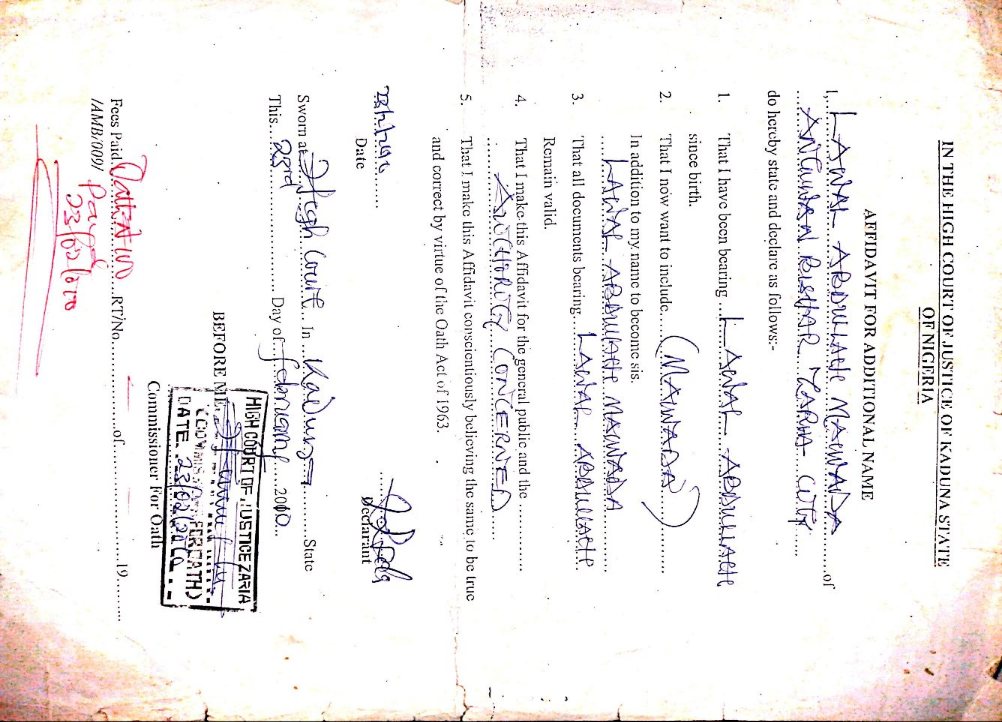 IN THE HIGH COURT OF JUSTICE OF KADUNA STATE
OF NIGERIA
AFFIDAVIT FOR ADDITIONAL NAME
I,....LAWAL ABDULLAHI MAIWADA........of
....ANGUWAN BISHAR ZARIA CITY......
do hereby state and declare as follows:-
1. That I have been bearing ...LAWAL ABDULLAHI
since birth.
2. That I now want to include.......(MAIWADA)..........
In addition to my name to become sis.
....LAWAL ABDULLAHI MAIWADA..........
3. That all documents bearing....LAWAL ABDULLAHI.
Remain valid.
4. That I make this Affidavit for the general public and the ............
........AUTHORITY CONCERNED...........
5. That I make this Affidavit conscientiously believing the same to be true
and correct by virtue of the Oath Act of 1963.
Date
Declarant
Sworn at High Court... In....Kaduna..........State
This...23rd............... Day of..february....2010...
BEFORE ME
HIGH COURT OF JUSTICE ZARIA
DATE 23/02/2010
Commissioner For Oath
Fees Paid ...RT/No..................of.....................19............
/AMB/009/ Paid
23/02/010